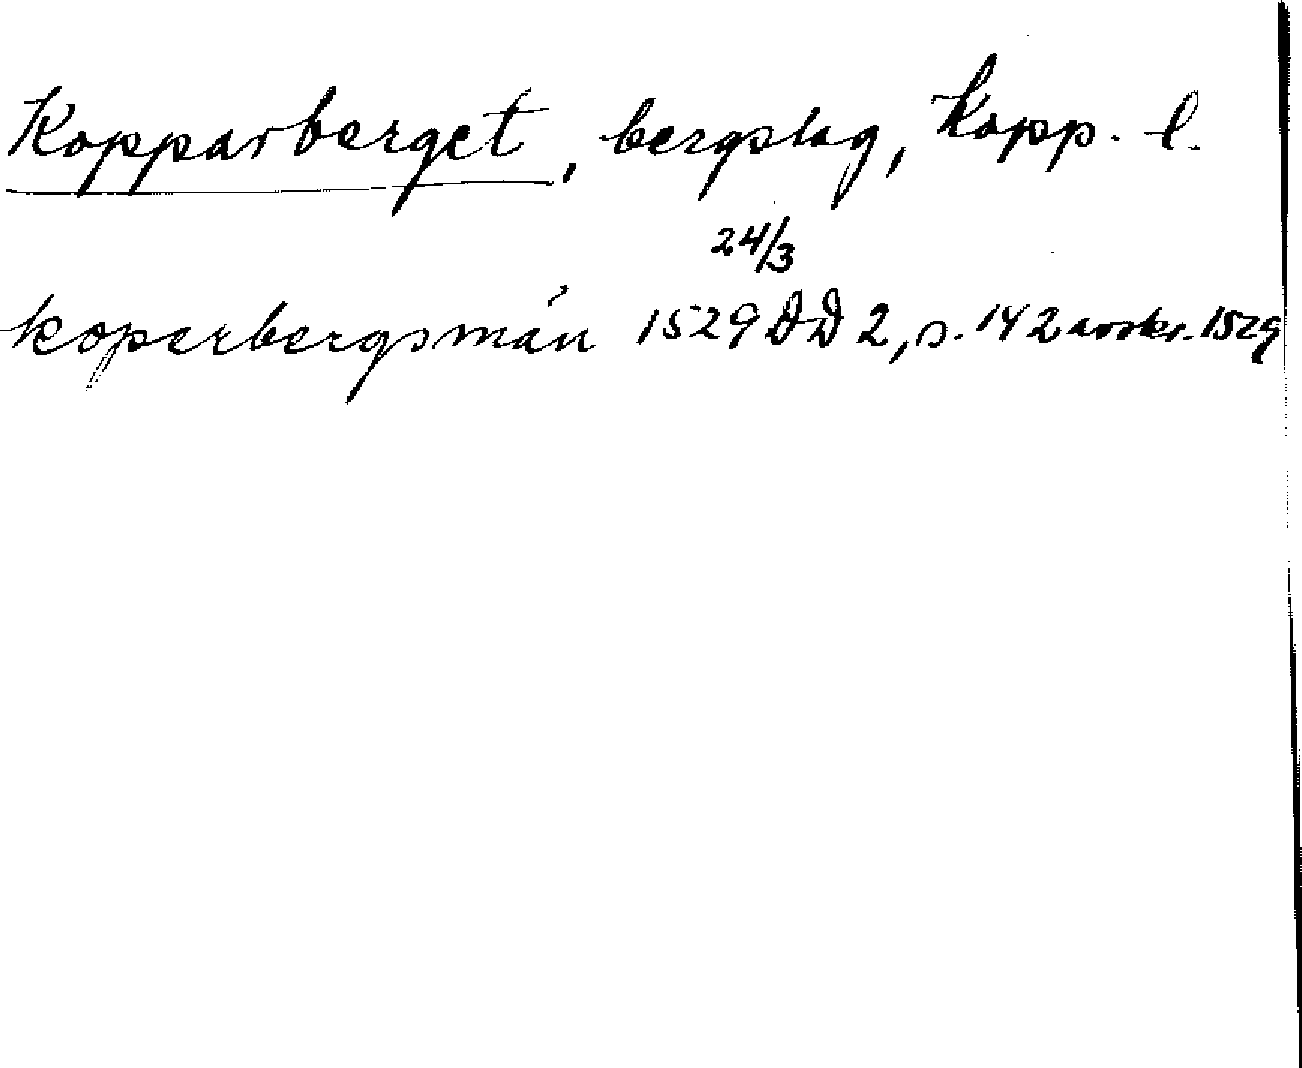 Kopparberget, bergslag, Kopp. l.
24/3
koperbergsmán 1529 DD 2, s. 142 avskr. 1529